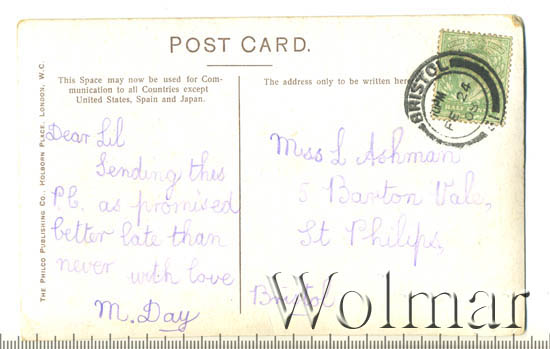 POST CARD.
This Space may now be used for Com-
munication to all Countries except
United States, Spain and Japan.
The address only to be written here
THE PHILCO PUBLISHING CO., HOLBORN PLACE, LONDON, W.C.
BRISTOL
FE 24
Dear Lil
Sending this
P.C. as promised
better late than
never with love
M. Day
Miss L Ashman
5 Barton Vale,
St Philips,
Bristol
Wolmar